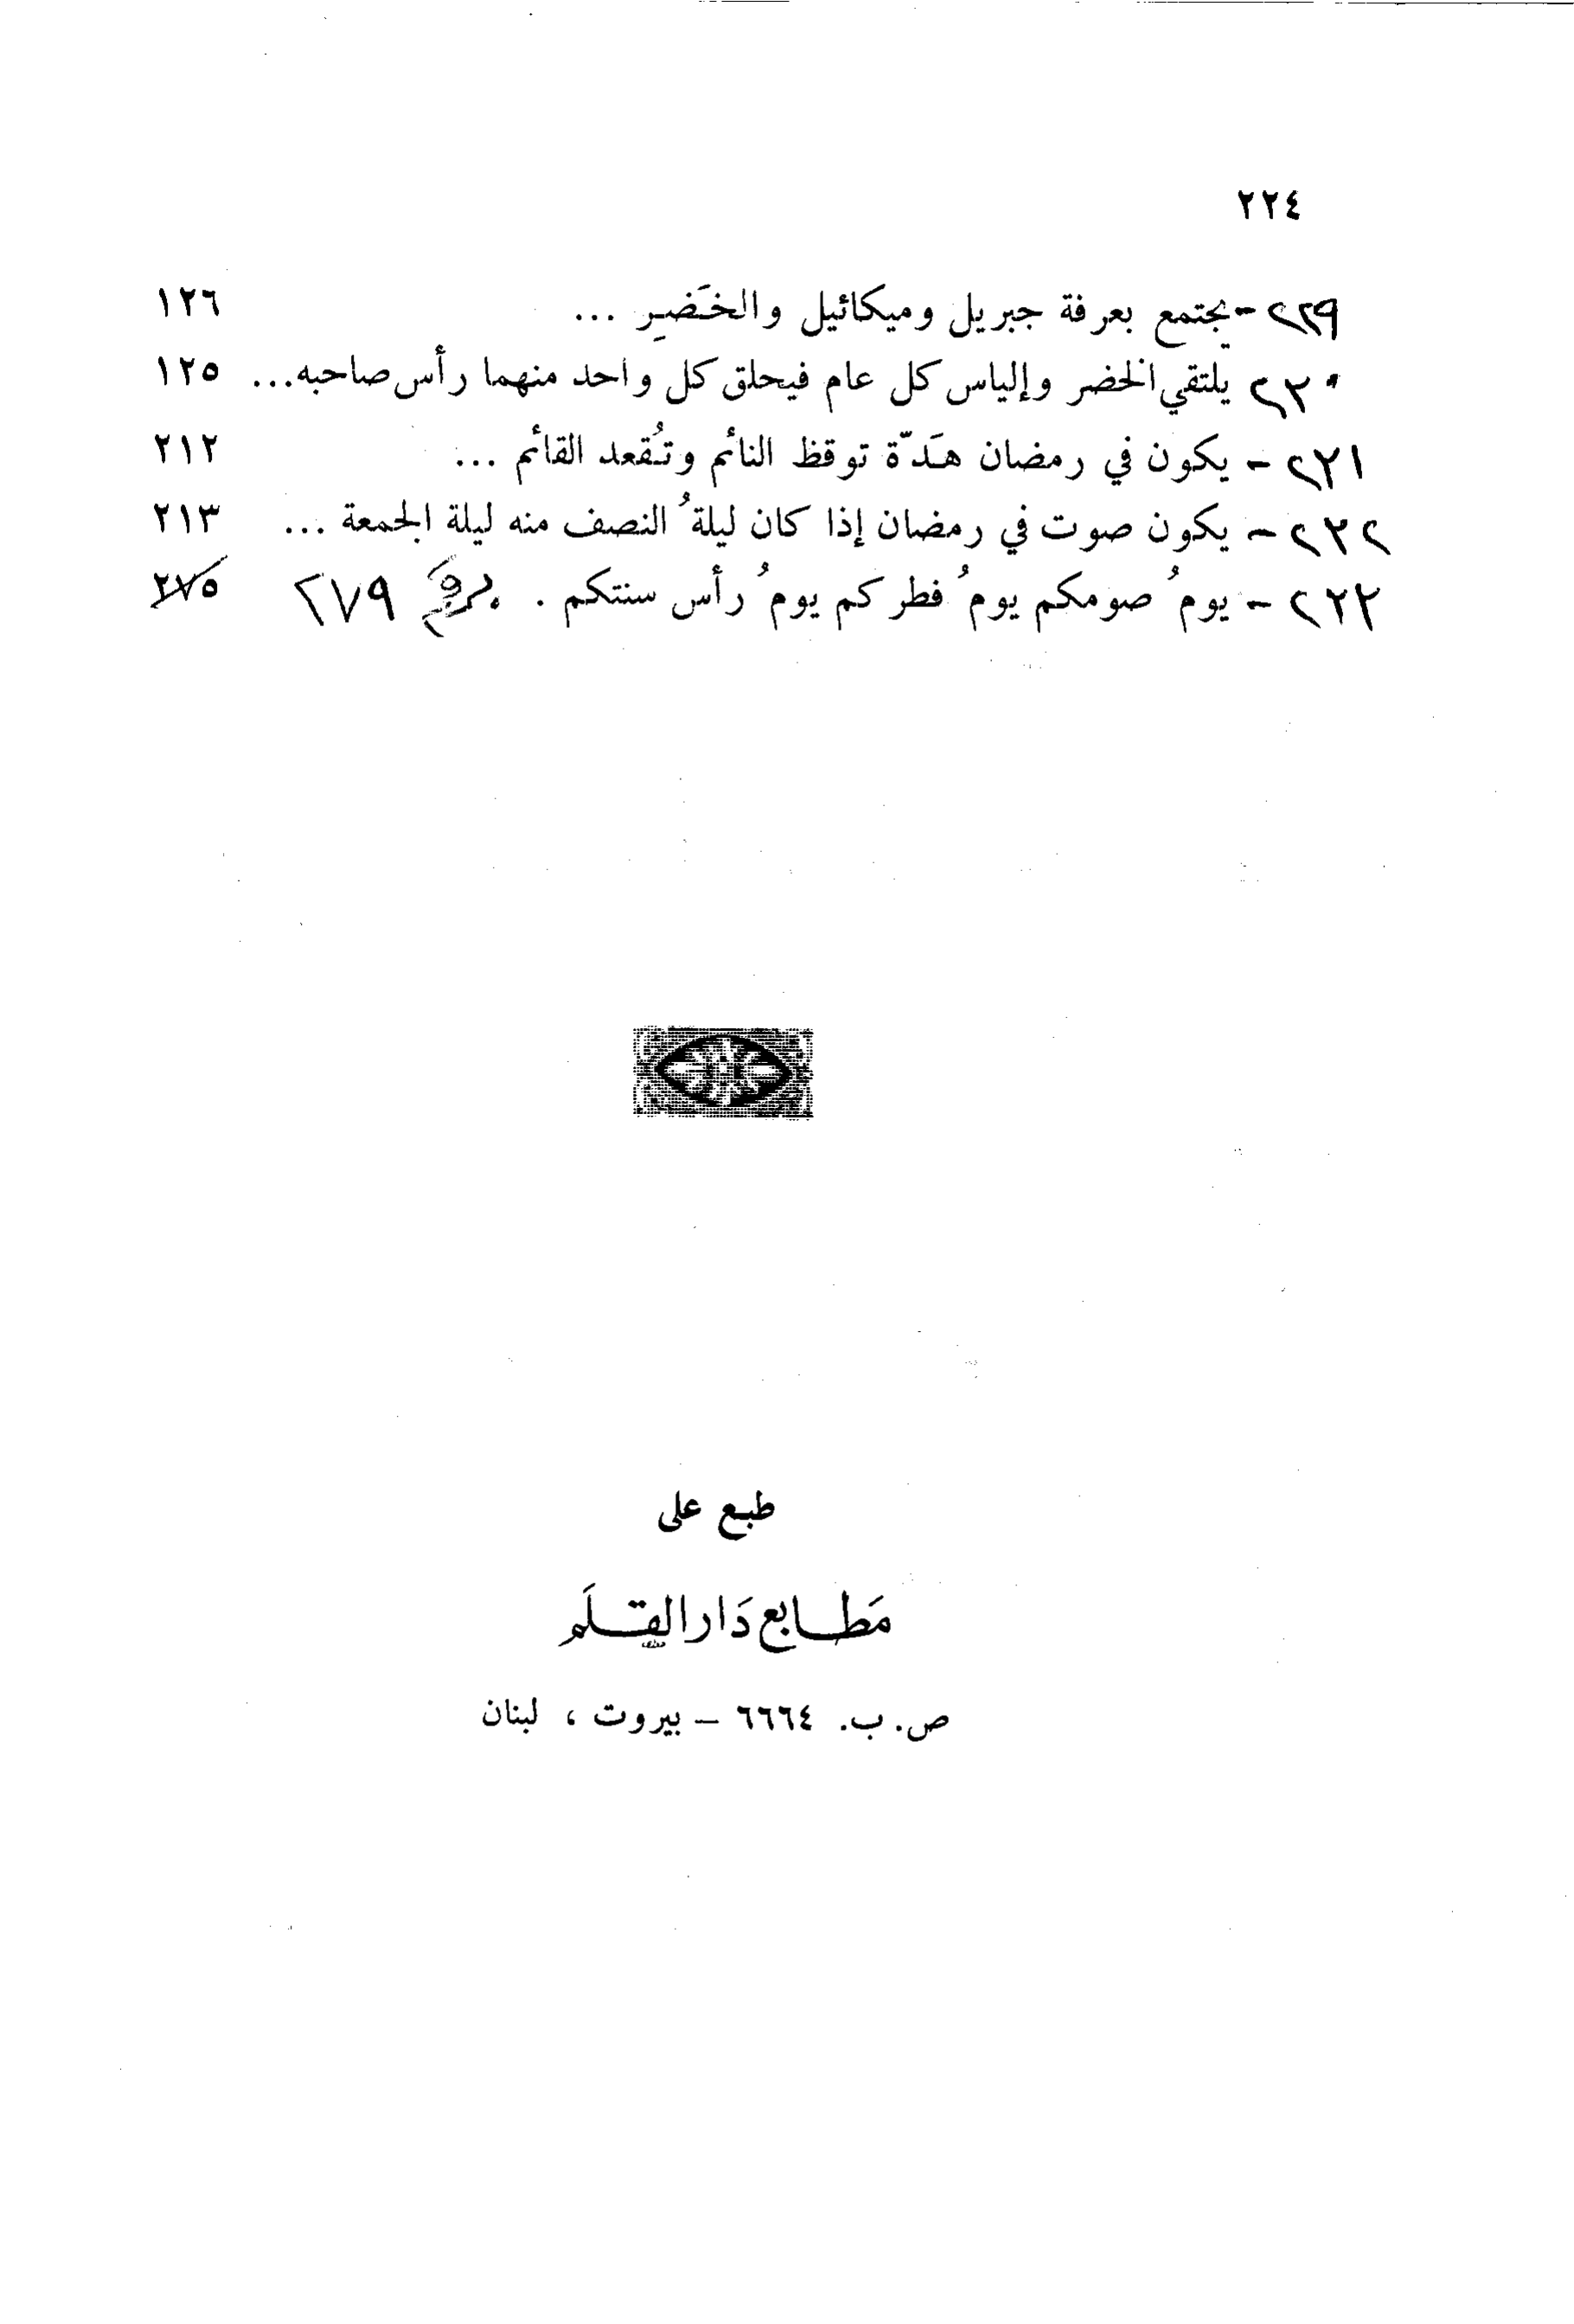 ٢٢٤
٢٢٩ - يجتمع بعرفة جبريل وميكائيل والخَضِر ... ١٢٦
٢٣٠ يلتقي الخضر وإلياس كل عام فيحلق كل واحد منهما رأس صاحبه... ١٢٥
٢٣١ - يكون في رمضان هَدّة توقظ النائم وتُقعد القائم ... ٢١٢
٢٣٢ - يكون صوت في رمضان إذا كان ليلةُ النصف منه ليلة الجمعة ... ٢١٣
٢٣٣ - يومُ صومكم يومُ فطركم يومُ رأس سنتكم . برقم ٢٧٩ ٢٧٥
طبع على
مَطابع دَار القلَم
ص. ب. ٦٦٦٤ – بيروت ، لبنان